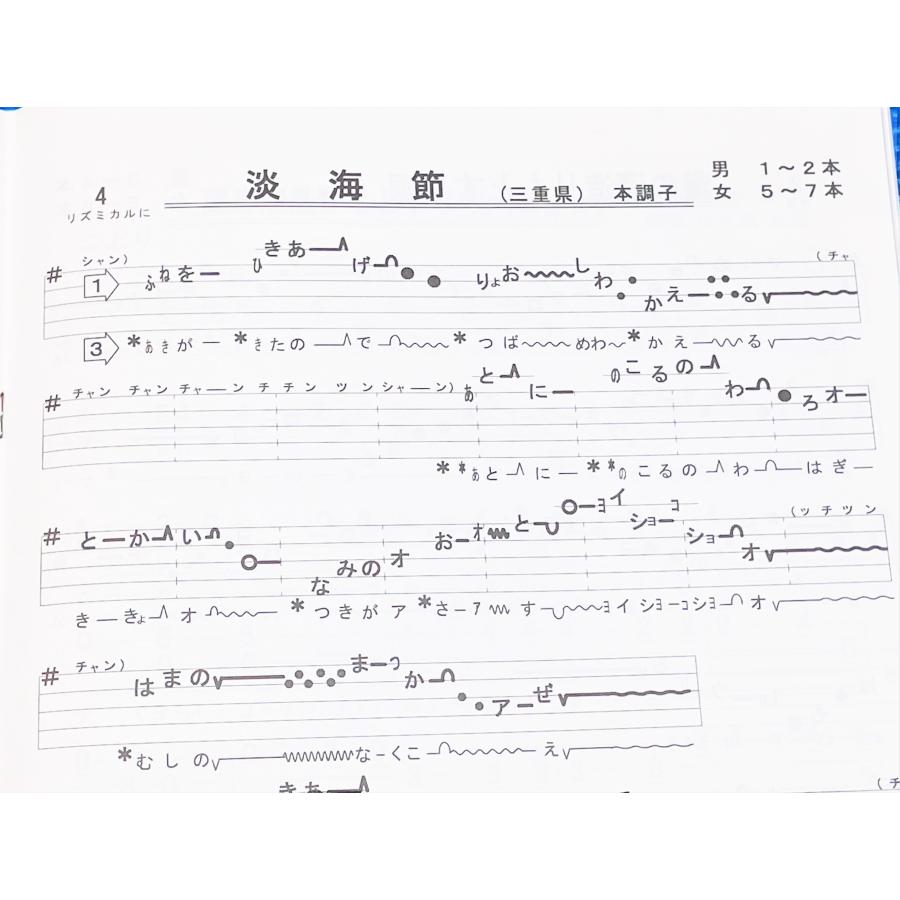 4 淡海節 (三重県) 本調子 男 1～2本
リズミカルに 女 5～7本
シャン) (チャ
1 ふねを一 ひきあーげ りょお しわ かえーる
3 *あきがー *きたのーで * つば〜めわ〜 *かえ〜る
チャン チャン チャーン チ チン ツ ン シャーン) あとーにー のこるのーわ ろオー
**あとーにー **のこるのーわーはぎー
とーかーい なみのオ おーオとー ーヨイショーコショーオ (ッチツン
きーきょーオ *つきがア *さーア すーヨイショーコショーオ
チャン) はまの まーつかー アーぜ
*むしの なーくこー え
きあー (チ